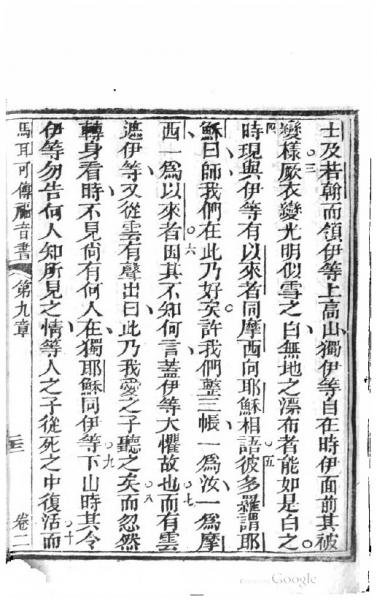 士及若翰而領伊等上高山獨伊等自在時伊面前其被
三
變樣厥衣變光明似雪之白無地之漂布者能如是白之
四 五
時現與伊等有以來者同摩西向耶穌相語彼多羅謂耶
穌曰師我們在此乃好矣許我們整三帳一為汝一為摩
六 七
西一為以來者因其不知何言蓋伊等大懼故也而有雲
八
遮伊等又從雲有聲出曰此乃我愛之子聽之矣而忽然
九
轉身看時不見尚有何人在獨耶穌同伊等下山時其令
十
伊等勿告何人知所見之情等人之子從死之中復活而
馬耳可傳福音書 第九章 卷二
Google